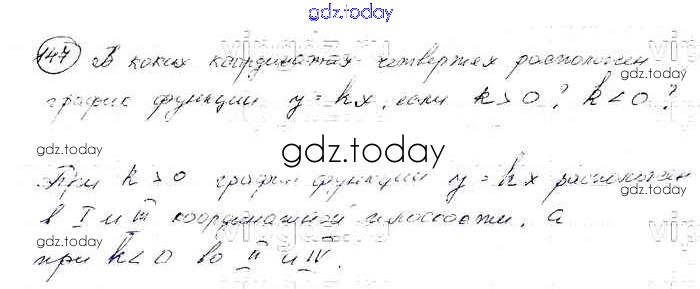 gdz.today
147 В каких координатах четвертях расположен
график функции y = kx, если k > 0? k < 0?
gdz.today
gdz.today
При k > 0 график функции y = kx расположен
в I и III координатной плоскости, а
gdz.today
при k < 0 во II и IV.
gdz.today